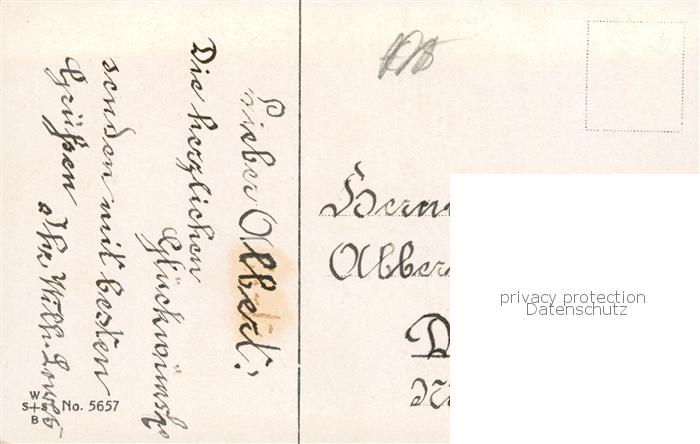 Lieber Albert!
Die herzlichen
Glückwünsche
senden mit besten
Grüßen
Ihr Wilh.
W
S+S No. 5657
B
Herrn
Alber
D
privacy protection
Datenschutz